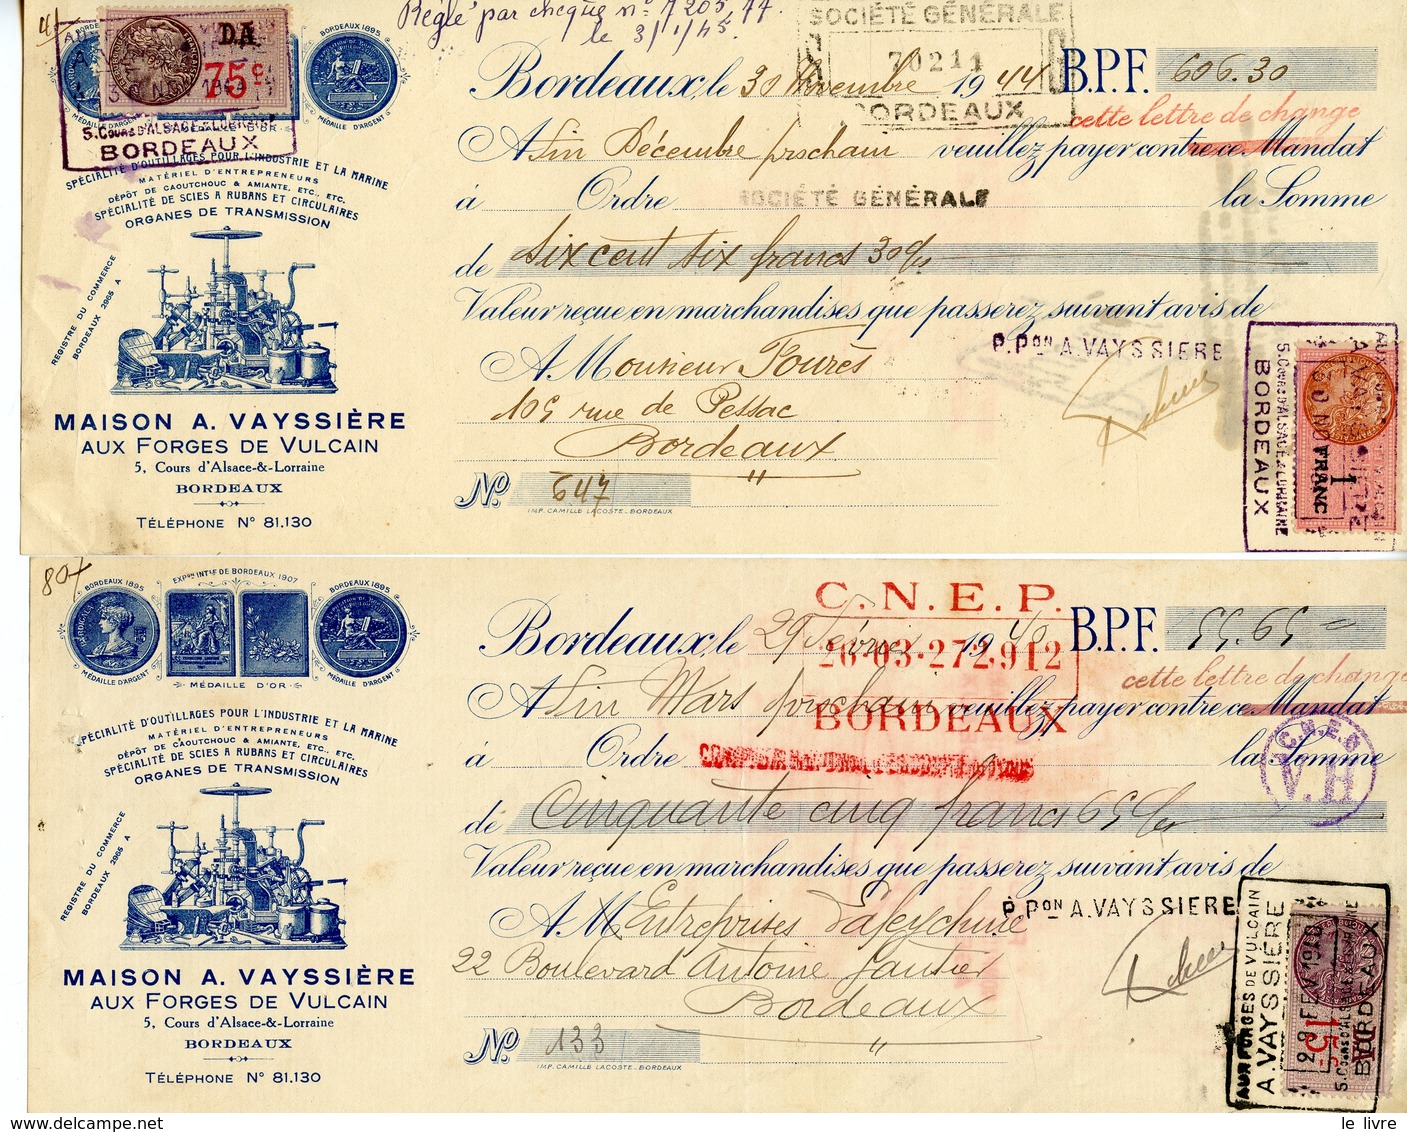 Réglé par chèque n° A 205,77
le 3/1/45
BORDEAUX 1895
D.A.
75 c.
MÉDAILLE D'ARGENT
MÉDAILLE D'OR
MÉDAILLE D'ARGENT
5. COURS D'ALSACE & LORRAINE
BORDEAUX
SPÉCIALITÉ D'OUTILLAGES POUR L'INDUSTRIE ET LA MARINE
MATÉRIEL D'ENTREPRENEURS
DÉPÔT DE CAOUTCHOUC & AMIANTE, ETC., ETC.
SPÉCIALITÉ DE SCIES A RUBANS ET CIRCULAIRES
ORGANES DE TRANSMISSION
REGISTRE DU COMMERCE
BORDEAUX 2965 A
MAISON A. VAYSSIÈRE
AUX FORGES DE VULCAIN
5, Cours d'Alsace-&-Lorraine
BORDEAUX
TÉLÉPHONE N° 81.130
SOCIÉTÉ GÉNÉRALE
70211
BORDEAUX
Bordeaux, le 30 Novembre 1944 B.P.F. 606.30
cette lettre de change
A fin Décembre prochain veuillez payer contre ce Mandat
à Ordre SOCIÉTÉ GÉNÉRALE la Somme
de Six cent six francs 30 c/s
Valeur reçue en marchandises que passerez suivant avis de
P. PON A. VAYSSIERE
A M Monsieur Pourès
105 rue de Pessac
Bordeaux
N° 647
IMP. CAMILLE LACOSTE - BORDEAUX
5. COURS D'ALSACE & LORRAINE
BORDEAUX
1 FRANC
807
BORDEAUX 1895
EXPON INTLE DE BORDEAUX 1907
BORDEAUX 1895
MÉDAILLE D'ARGENT
MÉDAILLE D'OR
MÉDAILLE D'ARGENT
SPÉCIALITÉ D'OUTILLAGES POUR L'INDUSTRIE ET LA MARINE
MATÉRIEL D'ENTREPRENEURS
DÉPÔT DE CAOUTCHOUC & AMIANTE, ETC., ETC.
SPÉCIALITÉ DE SCIES A RUBANS ET CIRCULAIRES
ORGANES DE TRANSMISSION
REGISTRE DU COMMERCE
BORDEAUX 2965 A
MAISON A. VAYSSIÈRE
AUX FORGES DE VULCAIN
5, Cours d'Alsace-&-Lorraine
BORDEAUX
TÉLÉPHONE N° 81.130
C.N.E.P.
26-03-272,912
BORDEAUX
Bordeaux, le 29 Février 1940 B.P.F. 55.65
cette lettre de change
A fin Mars prochain veuillez payer contre ce Mandat
à Ordre la Somme
C.N.E.P
V.H
de Cinquante cinq francs 65 c/es
Valeur reçue en marchandises que passerez suivant avis de
P. PON A. VAYSSIERE
A M Entreprises
22 Boulevard Antoine Gautier
Bordeaux
N° 133
IMP. CAMILLE LACOSTE - BORDEAUX
AUX FORGES DE VULCAIN
A. VAYSSIÈRE
29 FEV 1940
5. COURS D'ALSACE & LORRAINE
BORDEAUX
15 c.
le livre